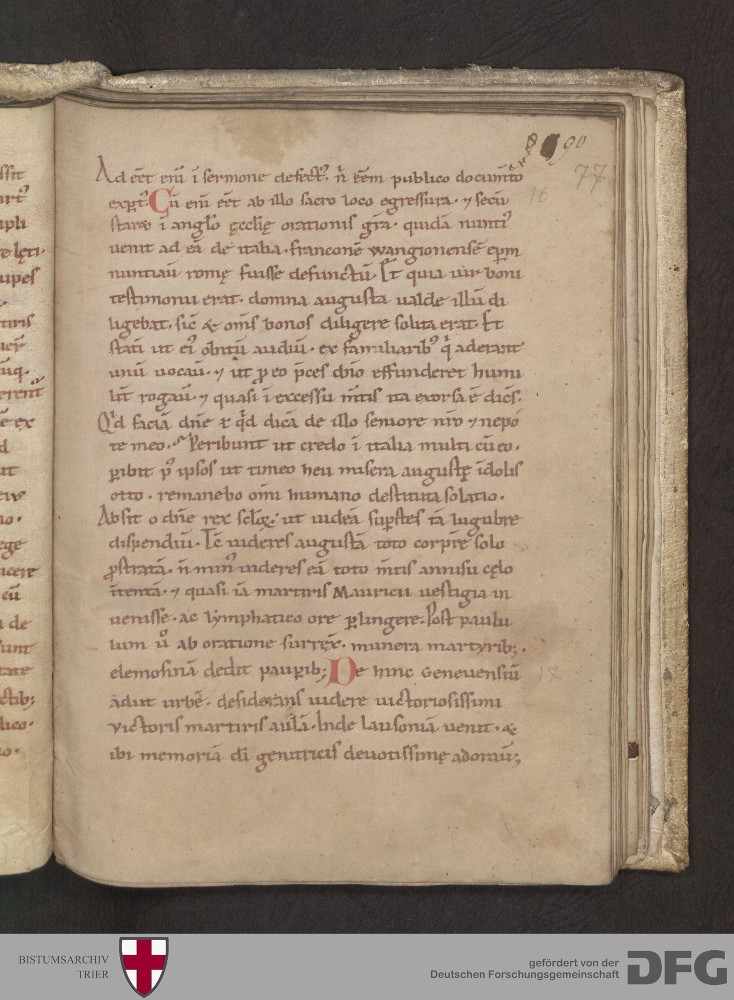 90
77
Ad eēt eni̅ i̅ sermone defect᷒. n̄ ee̅m publico documto
exꝑt᷒. Cu̅ eni̅ eēt ab illo sacro loco egressura. ⁊ secu
stare i̅ anglo ęcclię orationis gr̅a. quida̅ nunti᷒
uenit ad ea̅ de italia. francone̅ wangionense̅ ep̅m
nuntiau̅ romę fuisse defunctu̅. Et quia uir boni
testimonii erat. domna augusta ualde illu̅ di
ligebat. sic̅ & om̅s bonos diligere solita erat. Et
stati̅ ut ei᷒ obitu̅ audiu̅. ex familiarib᷒ q̅ aderant
unu̅ uocau̅. ⁊ ut ꝓ eo p̅ces dn̅o effunderet humi
lit̅ rogau̅. ⁊ quasi i̅ excessu m̅tis ita exorsa ē dice̅s.
Qd̅ facia̅ dn̅e ł qd̅ dica̅ de illo seniore n̅ro ⁊ nepo
te meo. Peribunt ut credo i̅ italia multi cu̅ eo.
ꝑibit p᷒ ipsos ut timeo heu misera augustę i̅dolis
otto. remanebo om̅i humano destituta solatio.
Absit o dn̅e rex sclo̅ꝝ. ut uidea̅ sup̅stes ta̅ lugubre
dispendiu̅. Ic̅ uideres augusta̅ toto corp̅re solo
ꝓstrata̅. n̄ min᷒ uideres ea̅ toto m̅tis annisu cęlo
i̅tenta̅. ⁊ quasi ia̅ martiris Mauricii uestigia in
uenisse. ac lymphatico ore ꝑlingere. Post paulu
lum u̅o ab oratione surrex̅. munera martyrib;.
elemosina̅ dedit pauꝑib; De hinc Geneuensiu̅
adiit urbe̅. desiderans uidere uictoriosissimi
victoris martiris aula̅. Inde lausonia̅ uenit. &
ibi memoria̅ di̅ genitricis deuotissimę adorau̅;
16
17
BISTUMSARCHIV
TRIER
gefördert von der
Deutschen Forschungsgemeinschaft
DFG